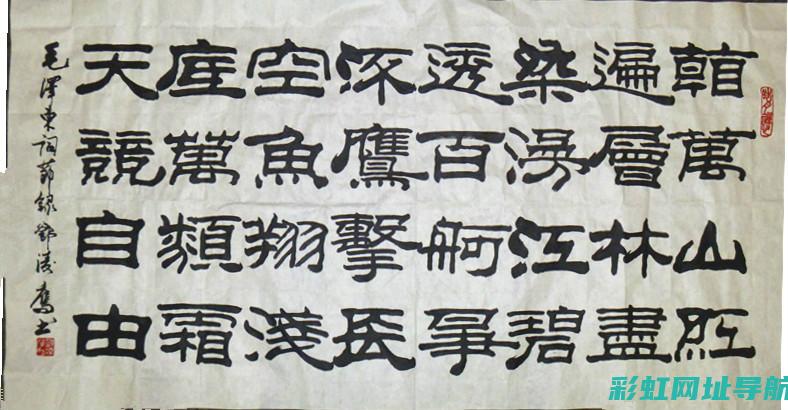 看萬山紅
遍層林盡
染漫江碧
透百舸爭
流鷹擊長
空魚翔淺
底萬類霜
天競自由
毛澤東詞節録
彩虹网址导航